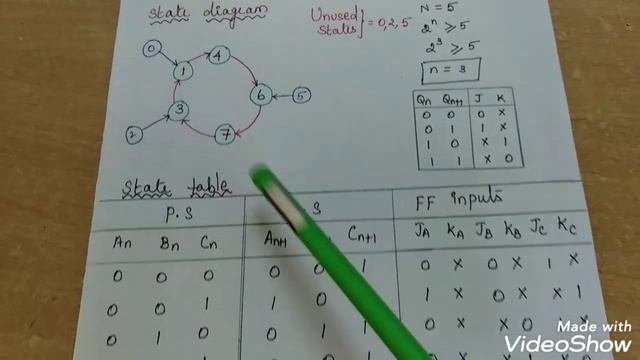 state diagram
Unused states } = 0, 2, 5
N = 5
2ⁿ ≥ 5
2³ ≥ 5
n = 3
0
1
4
6
5
7
3
2
Qn Qn+1 J K
0 0 0 X
0 1 1 X
1 0 X 1
1 1 X 0
state table
P.S S FF inputs
An Bn Cn An+1 Cn+1 JA KA JB KB JC KC
0 0 0 0 0 1 0 X 0 X 1 X
0 0 1 1 0 1 X 0 X X 1
0 1 0 0 1 1 0 X X 0 1 X
Made with
VideoShow